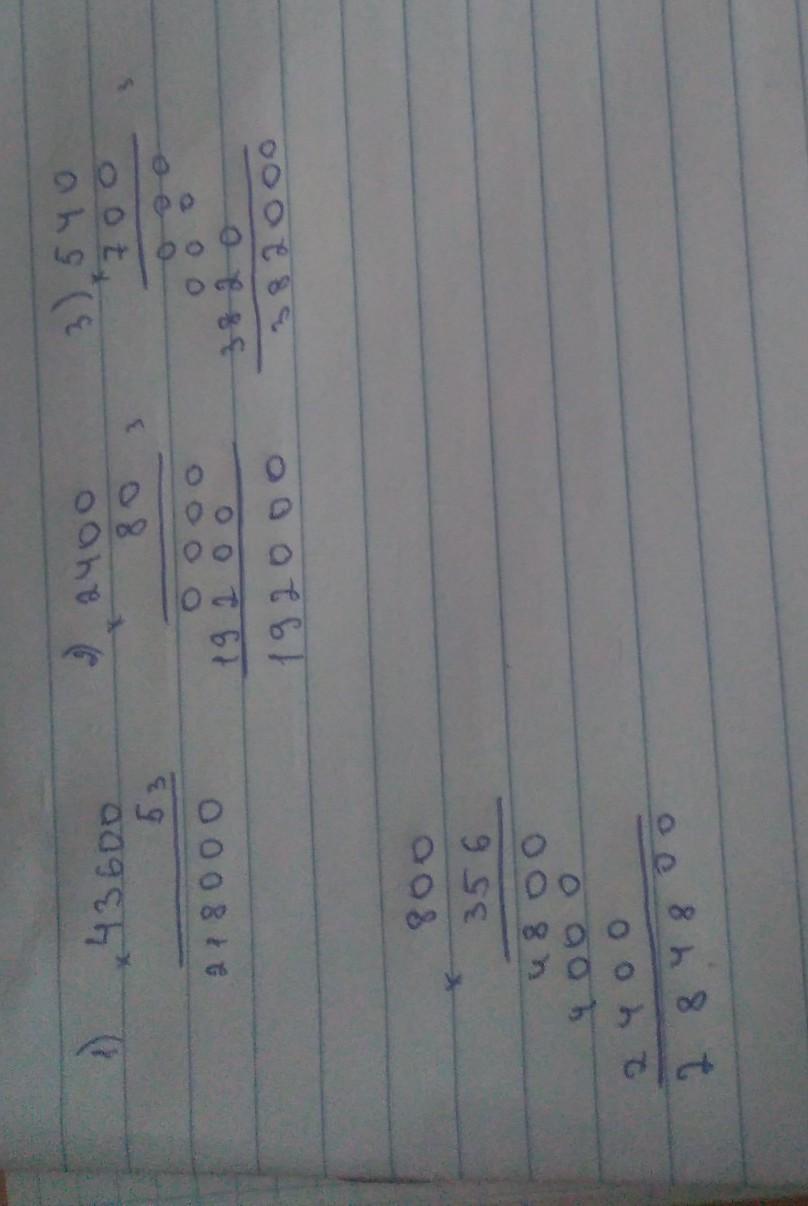 1) 43600
× 5 3
218000
2) 2400
× 80 3
0000
19200
192000
3) 540
× 700 3
000
000
3820
382000
800
× 356
4800
4000
2400
284800